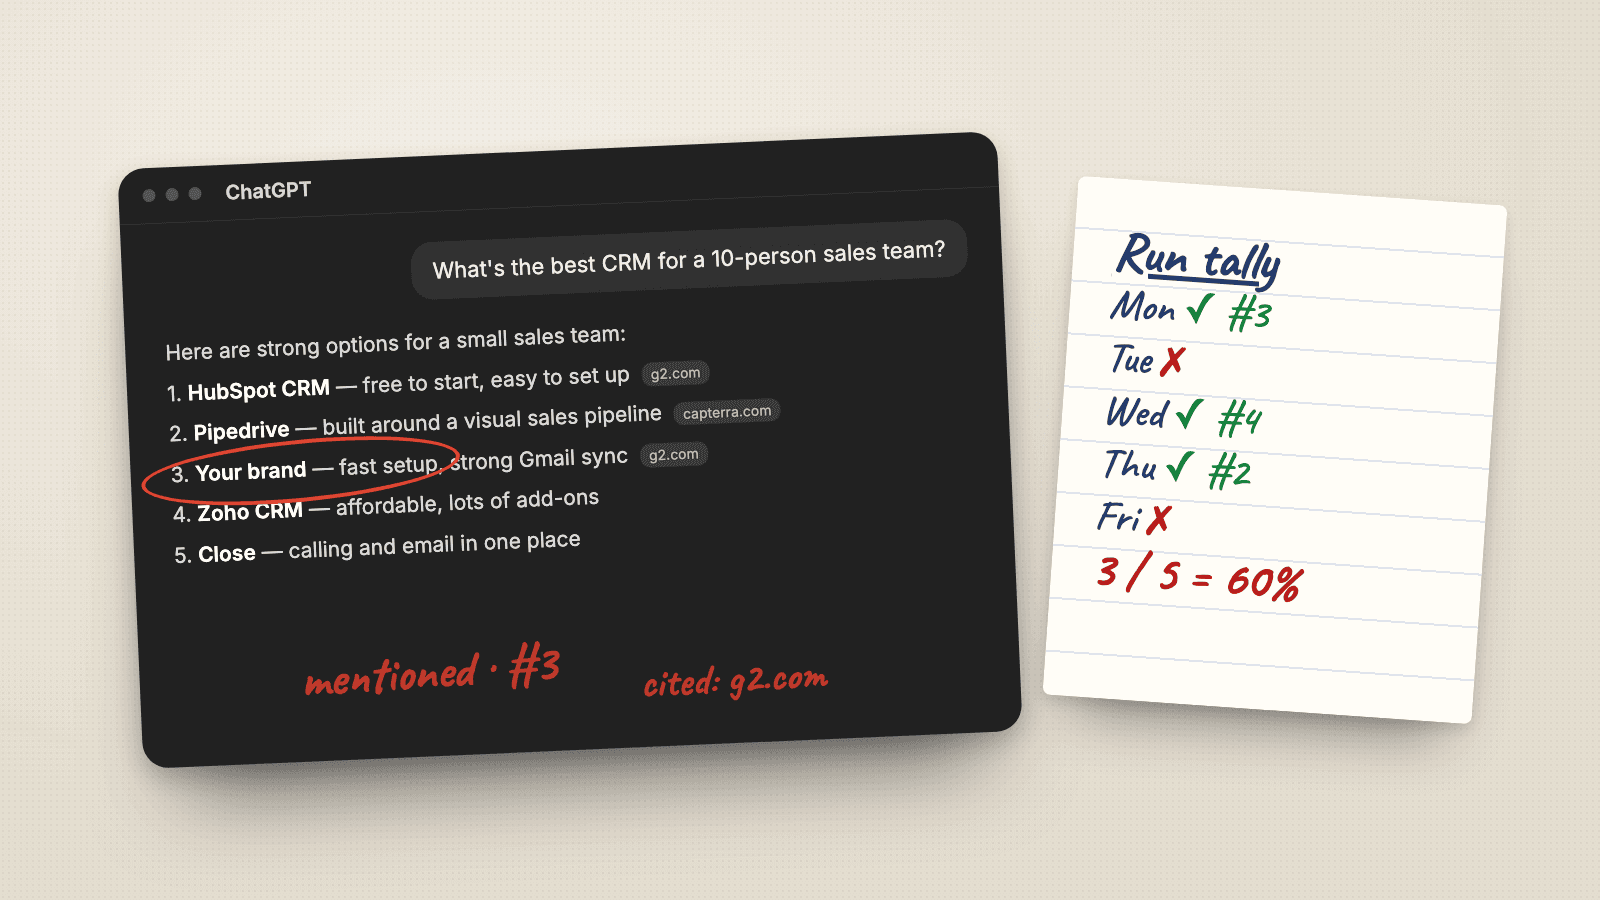 ChatGPT
What's the best CRM for a 10-person sales team?
Here are strong options for a small sales team:
1. HubSpot CRM — free to start, easy to set up g2.com
2. Pipedrive — built around a visual sales pipeline capterra.com
3. Your brand — fast setup, strong Gmail sync g2.com
4. Zoho CRM — affordable, lots of add-ons
5. Close — calling and email in one place
mentioned · #3
cited: g2.com
Run tally
Mon ✓ #3
Tue ✗
Wed ✓ #4
Thu ✓ #2
Fri ✗
3 / 5 = 60%